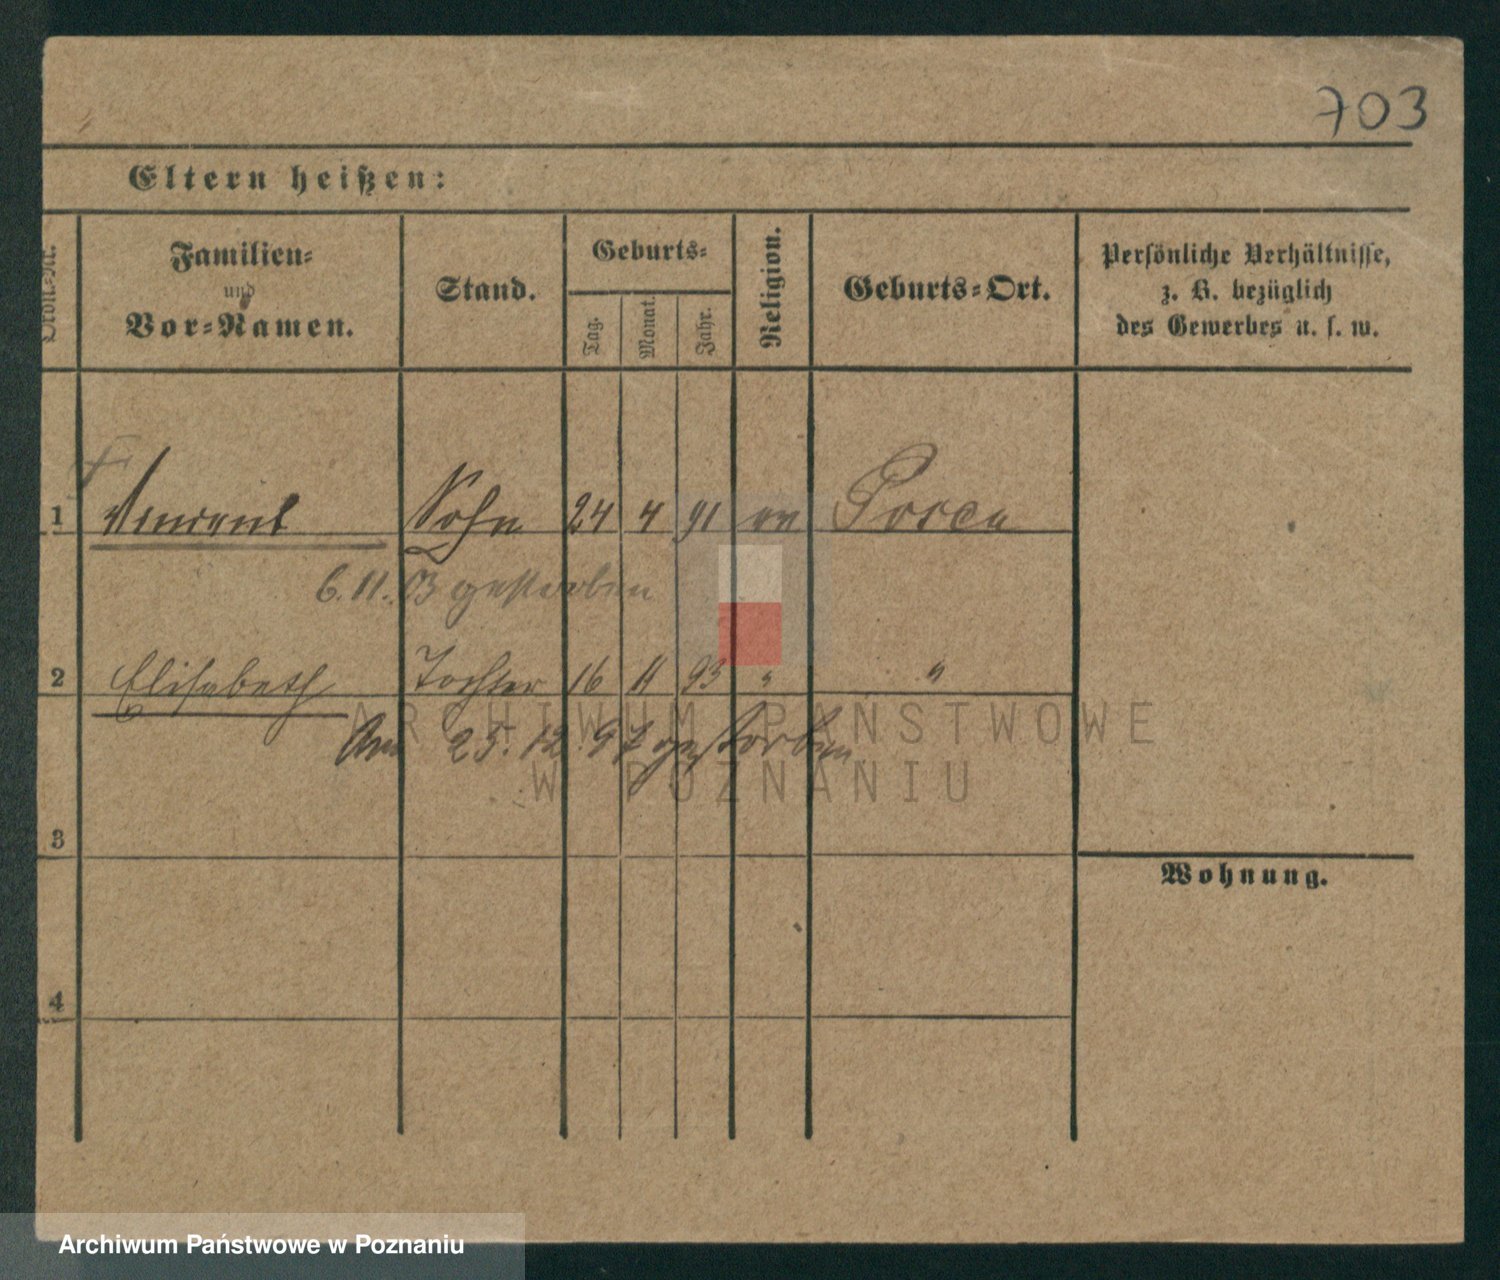 703
Eltern heißen:
Ordn.-Nr.
Familien-
und
Vor-Namen.
Stand.
Geburts-
Tag.
Monat.
Jahr.
Religion.
Geburts-Ort.
Persönliche Verhältnisse,
z. B. bezüglich
des Gewerbes u. s. w.
1 Sohn 24 4 91
6.11.03 gestorben
2 Elisabeth Tochter 16 11 93 " "
Am 25. 12. 97 gestorben
3
Wohnung.
4
ARCHIWUM PAŃSTWOWE
W POZNANIU
Archiwum Państwowe w Poznaniu